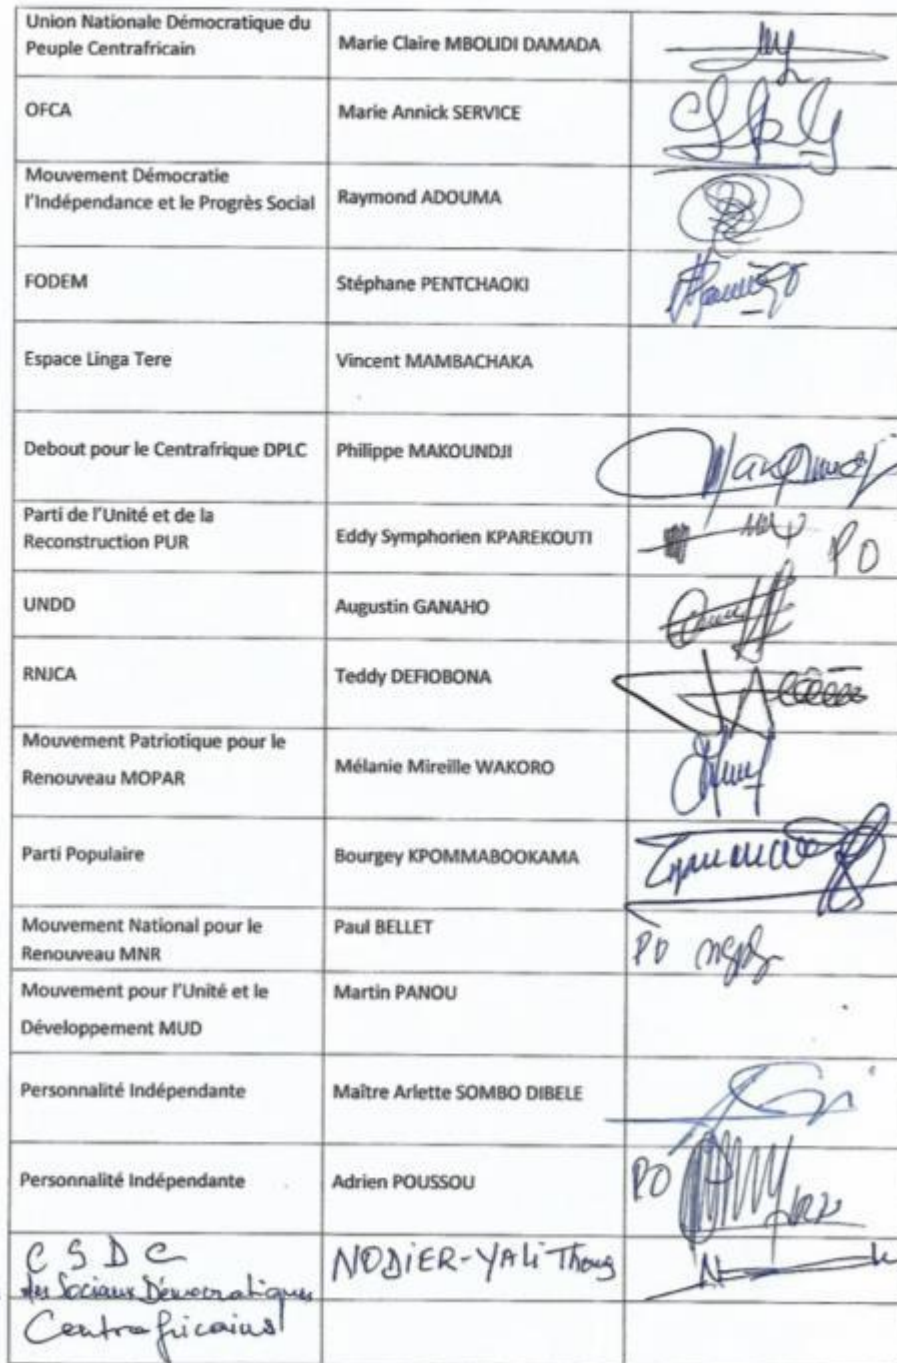 Union Nationale Démocratique du
Peuple Centrafricain
Marie Claire MBOLIDI DAMADA
OFCA
Marie Annick SERVICE
Mouvement Démocratie
l'Indépendance et le Progrès Social
Raymond ADOUMA
FODEM
Stéphane PENTCHAOKI
Espace Linga Tere
Vincent MAMBACHAKA
Debout pour le Centrafrique DPLC
Philippe MAKOUNDJI
Parti de l'Unité et de la
Reconstruction PUR
Eddy Symphorien KPAREKOUTI
PO
UNDD
Augustin GANAHO
RNJCA
Teddy DEFIOBONA
Mouvement Patriotique pour le
Renouveau MOPAR
Mélanie Mireille WAKORO
Parti Populaire
Bourgey KPOMMABOOKAMA
Mouvement National pour le
Renouveau MNR
Paul BELLET
PO
Mouvement pour l'Unité et le
Développement MUD
Martin PANOU
Personnalité Indépendante
Maître Arlette SOMBO DIBELE
Personnalité Indépendante
Adrien POUSSOU
PO
CSDC
des Sociaux Démocratiques
Centrafricains
NODIER-YALI